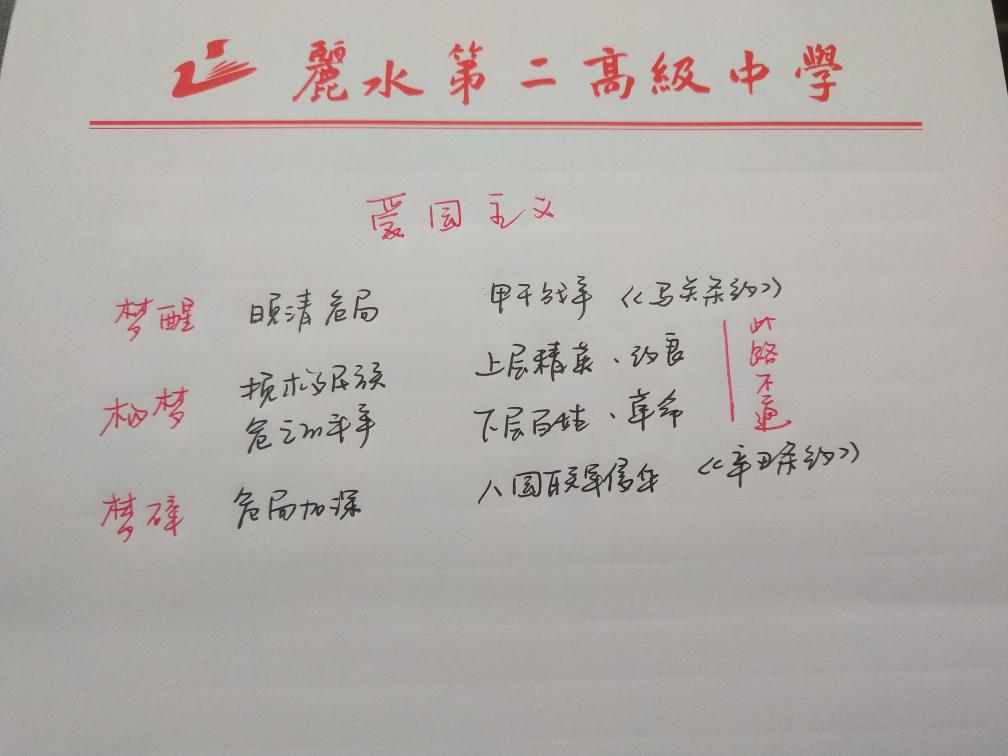 麗水第二高級中學
爱国主义
梦醒 晚清危局 甲午战争 《马关条约》
构梦 挽救民族 上层精英、改良
危亡的斗争 下层百姓、革命
此路不通
梦碎 危局加深 八国联军侵华 《辛丑条约》